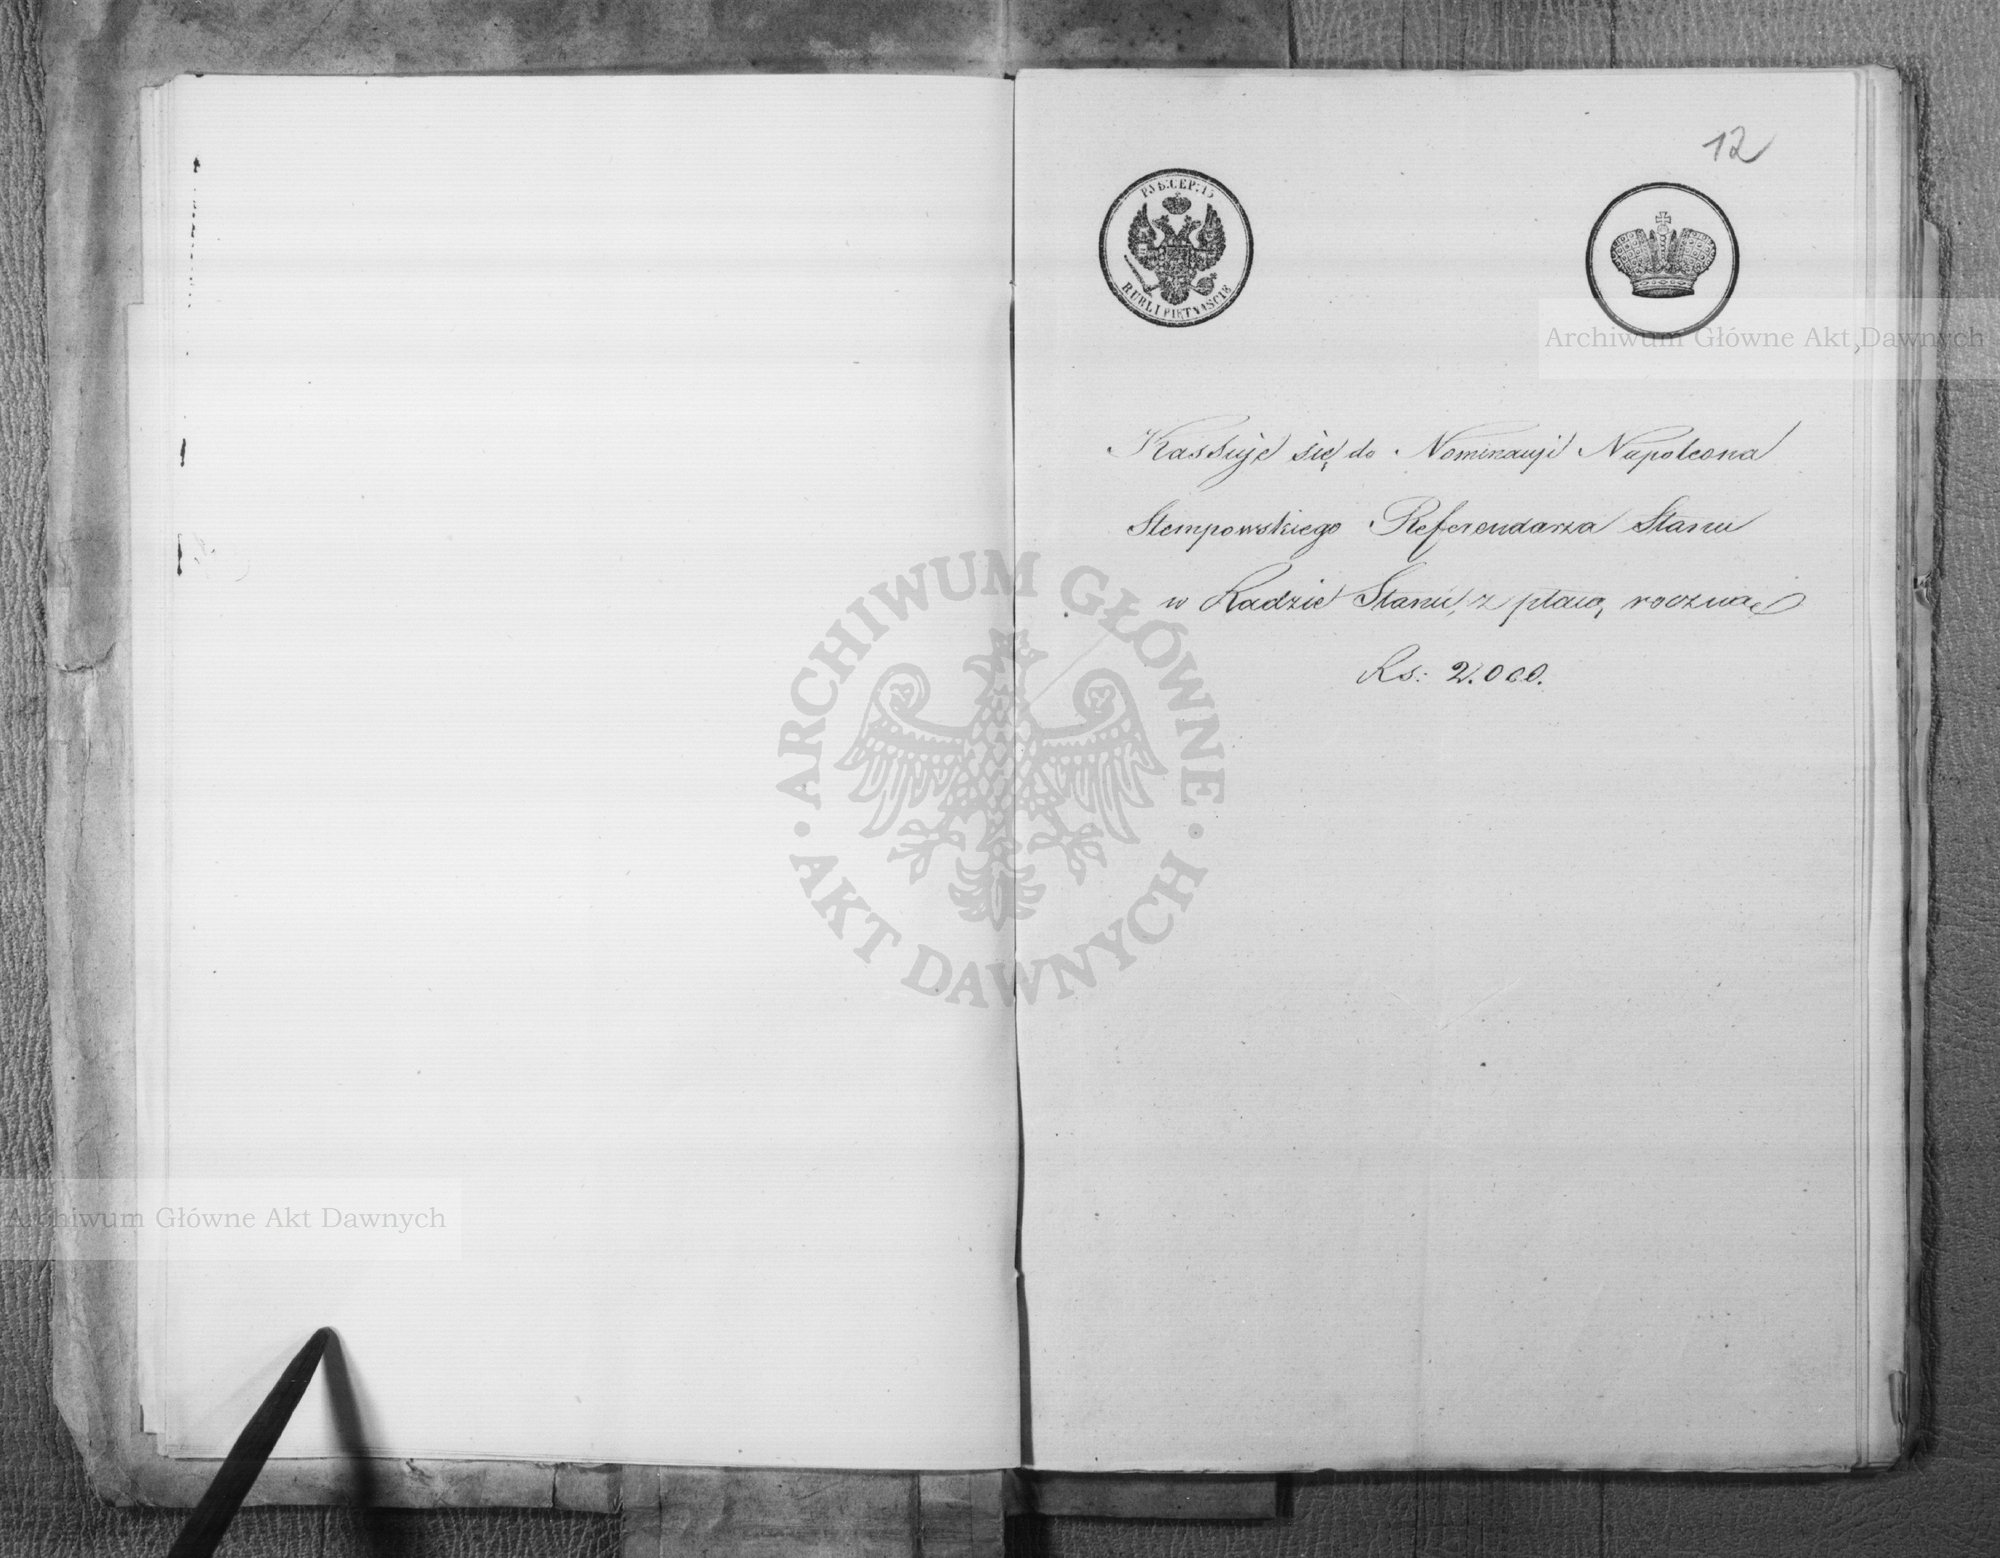 12
РУБ.СЕР: 15
RUBLI PIĘTNAŚCIE
Kassuje się do Nominacyi Napoleona
Stempowskiego Referendarza Stanu
w Radzie Stanu, z płacą roczną
Rs: 2.000.
Archiwum Główne Akt Dawnych
ARCHIWUM GŁÓWNE
AKT DAWNYCH
Archiwum Główne Akt Dawnych